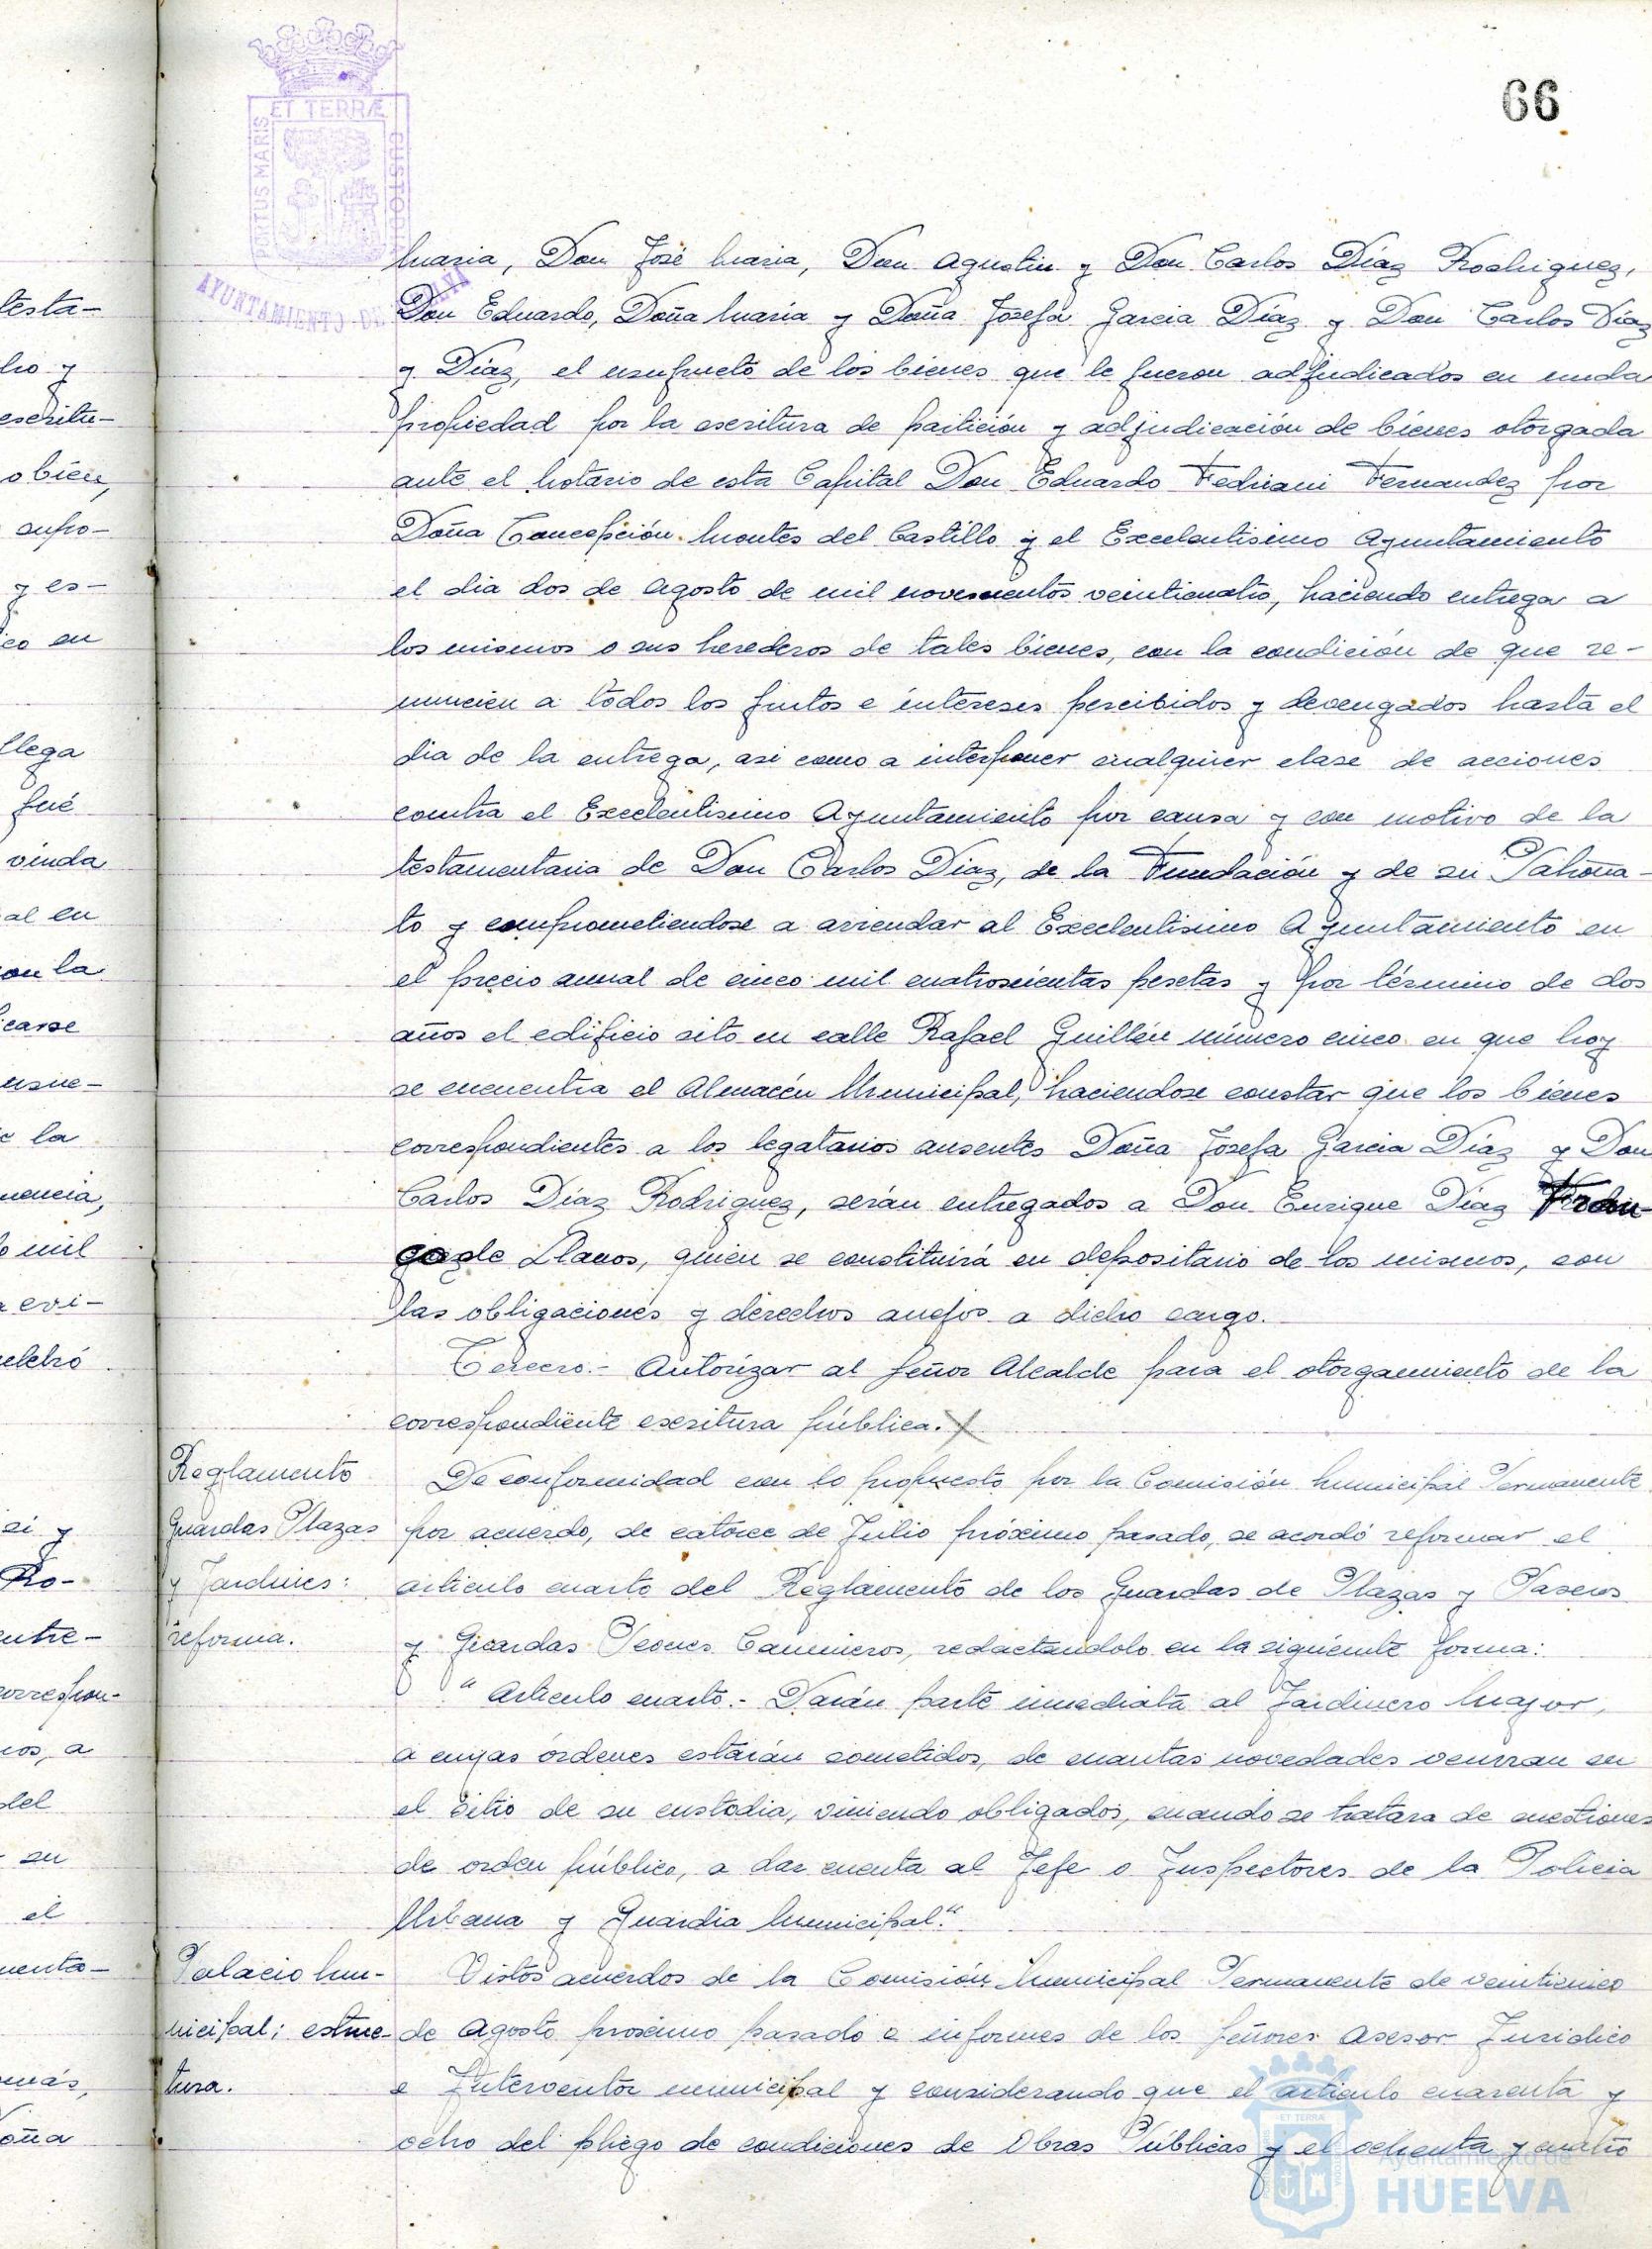 66
PORTUS MARIS
ET TERRÆ
CUSTODIA
AYUNTAMIENTO DE
Maria, Don José Maria, Don Agustin y Don Carlos Díaz Rodriguez,
Don Eduardo, Doña Maria y Doña Josefa Garcia Díaz y Don Carlos Díaz
y Díaz, el usufructo de los bienes que le fueron adjudicados en nuda
propiedad por la escritura de partición y adjudicación de bienes otorgada
ante el Notario de esta Capital Don Eduardo Fedriani Fernandez por
Doña Concepción Montes del Castillo y el Excelentisimo Ayuntamiento
el dia dos de Agosto de mil novecientos veinticuatro, haciendo entrega a
los mismos o sus herederos de tales bienes, con la condición de que re-
nuncien a todos los frutos e intereses percibidos y devengados hasta el
dia de la entrega, asi como a interponer cualquier clase de acciones
contra el Excelentisimo Ayuntamiento por causa y con motivo de la
testamentaria de Don Carlos Díaz, de la Fundación y de su Patrona-
to y comprometiendose a arrendar al Excelentisimo Ayuntamiento en
el precio anual de cinco mil cuatrocientas pesetas y por término de dos
años el edificio sito en calle Rafael Guillén número cinco en que hoy
se encuentra el Almacén Municipal, haciendose constar que los bienes
correspondientes a los legatarios ausentes Doña Josefa Garcia Díaz y Don
Carlos Díaz Rodriguez, serán entregados a Don Enrique Díaz
de Llanos, quien se constituirá en depositario de los mismos, con
las obligaciones y derechos anejos a dicho cargo.
Tercero.- Autorizar al Señor Alcalde para el otorgamiento de la
correspondiente escritura pública.
Reglamento
Guardas Plazas
y Jardines:
reforma.
De conformidad con lo propuesto por la Comisión Municipal Permanente
por acuerdo, de catorce de Julio próximo pasado, se acordó reformar el
articulo cuarto del Reglamento de los Guardas de Plazas y Paseos
y Guardas Peones Camineros, redactandolo en la siguiente forma:
" Articulo cuarto.- Darán parte inmediata al Jardinero Mayor,
a cuyas órdenes estarán sometidos, de cuantas novedades ocurran en
el sitio de su custodia, viniendo obligados, cuando se tratara de cuestiones
de orden público, a dar cuenta al Jefe o Inspectores de la Policia
Urbana y Guardia Municipal."
Palacio Mu-
nicipal; estruc-
tura.
Vistos acuerdos de la Comisión Municipal Permanente de veinticinco
de Agosto proximo pasado e informes de los Señores Asesor Juridico
e Interventor municipal y considerando que el articulo cuarenta y
ocho del pliego de condiciones de Obras Públicas y el ochenta y cuatro
testa-
ho y
escritu-
o bien,
supo-
y es-
co en
llega
fué
viuda
al en
con la
icarse
usue-
e la
uencia,
o mil
a evi-
elebró
si y
Ro-
entre-
correspon-
ios, a
del
su
el
uento-
emás,
oña
Ayuntamiento de
HUELVA